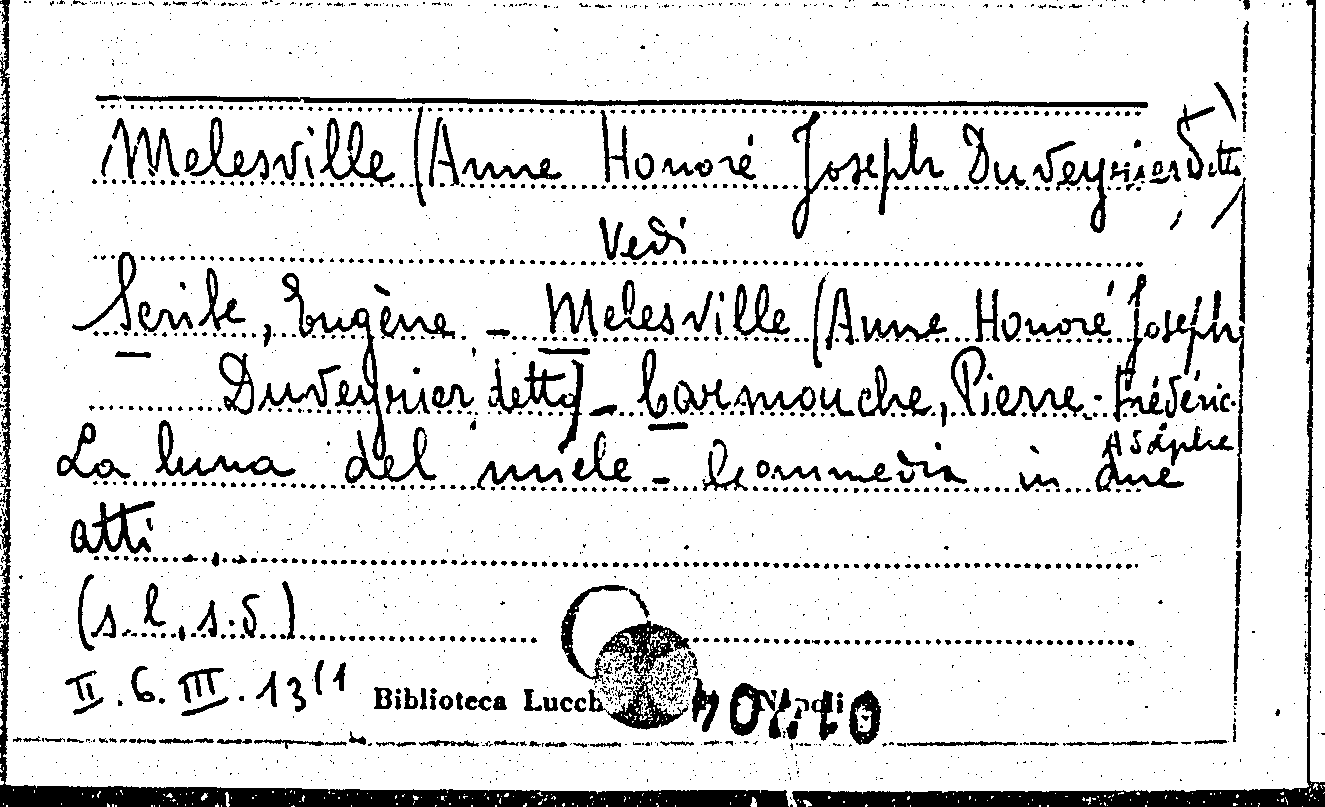 Melesville (Anne Honoré Joseph Duveyrier detto)
Vedi
Scribe, Eugène - Melesville (Anne Honoré Joseph
Duveyrier detto) - Carmouche, Pierre-Frédéric-
Adolphe
La luna del miele - Commedia in due
atti
(s.l, s.d)
II.6.III.13(1
Biblioteca Napoli